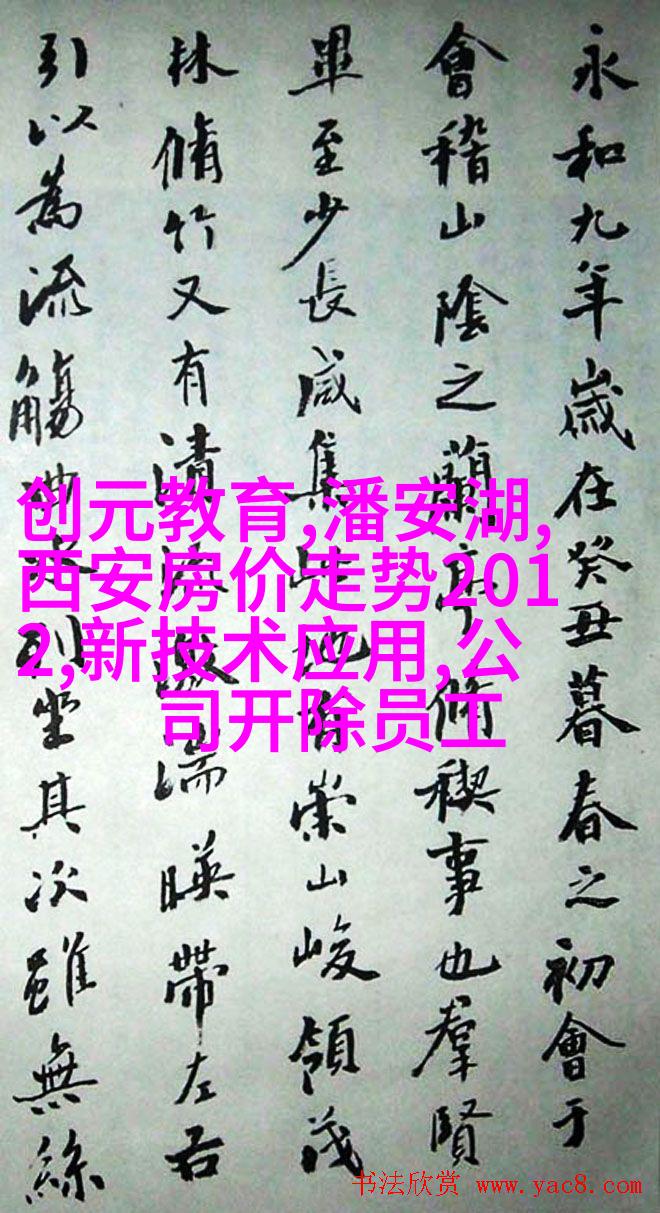 永和九年歲在癸丑暮春之初會于
會稽山陰之蘭亭脩稧事也羣賢
畢至少長咸集此地有崇山峻領茂
林脩竹又有清流激湍暎帶左右
引以為流觴曲水列坐其次雖無絲
创元教育,潘安湖,
西安房价走势201
2,新技术应用,公
司开除员工
书法欣赏 www.yac8.com